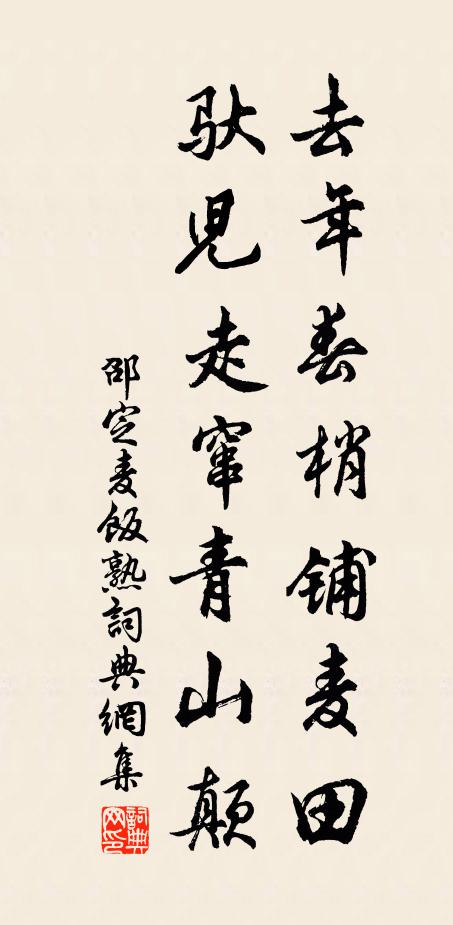 去年春梢铺麦田
驮儿走窜青山颠
邵定麦飯熟詞典網集
詞典网印